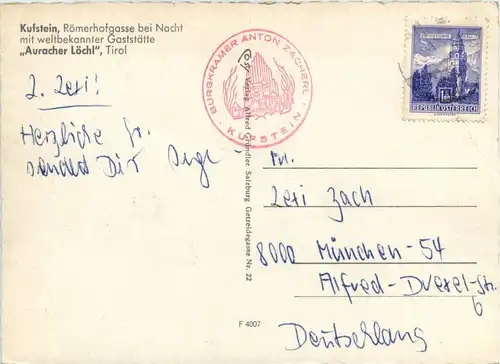 Kufstein, Römerhofgasse bei Nacht
mit weltbekannter Gaststätte
„Auracher Löchl", Tirol
L. Lexi!
Herzliche Gr.
sendet Dir
BURGKRAMER ANTON ZACHERL
· KUFSTEIN ·
Verlag Alfred Gründler Salzburg Getreidegasse Nr. 22
F 4007
REPUBLIK ÖSTERREICH
Frl.
Lexi Zach
8000 München-54
Alfred-Drexel-Str.
6
Deutschland